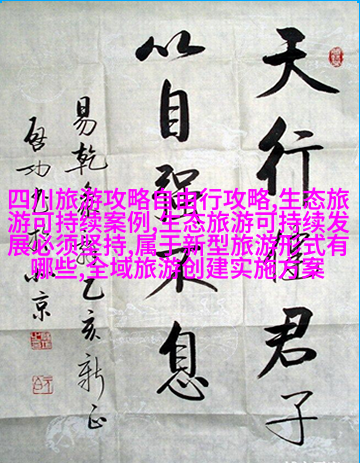 天行健君子
以自強不息
易乾乙亥新正
啟功京
四川旅游攻略自由行攻略,生态旅
游可持续案例,生态旅游可持续发
展必须坚持,属于新型旅游形式有
哪些,全域旅游创建实施方案